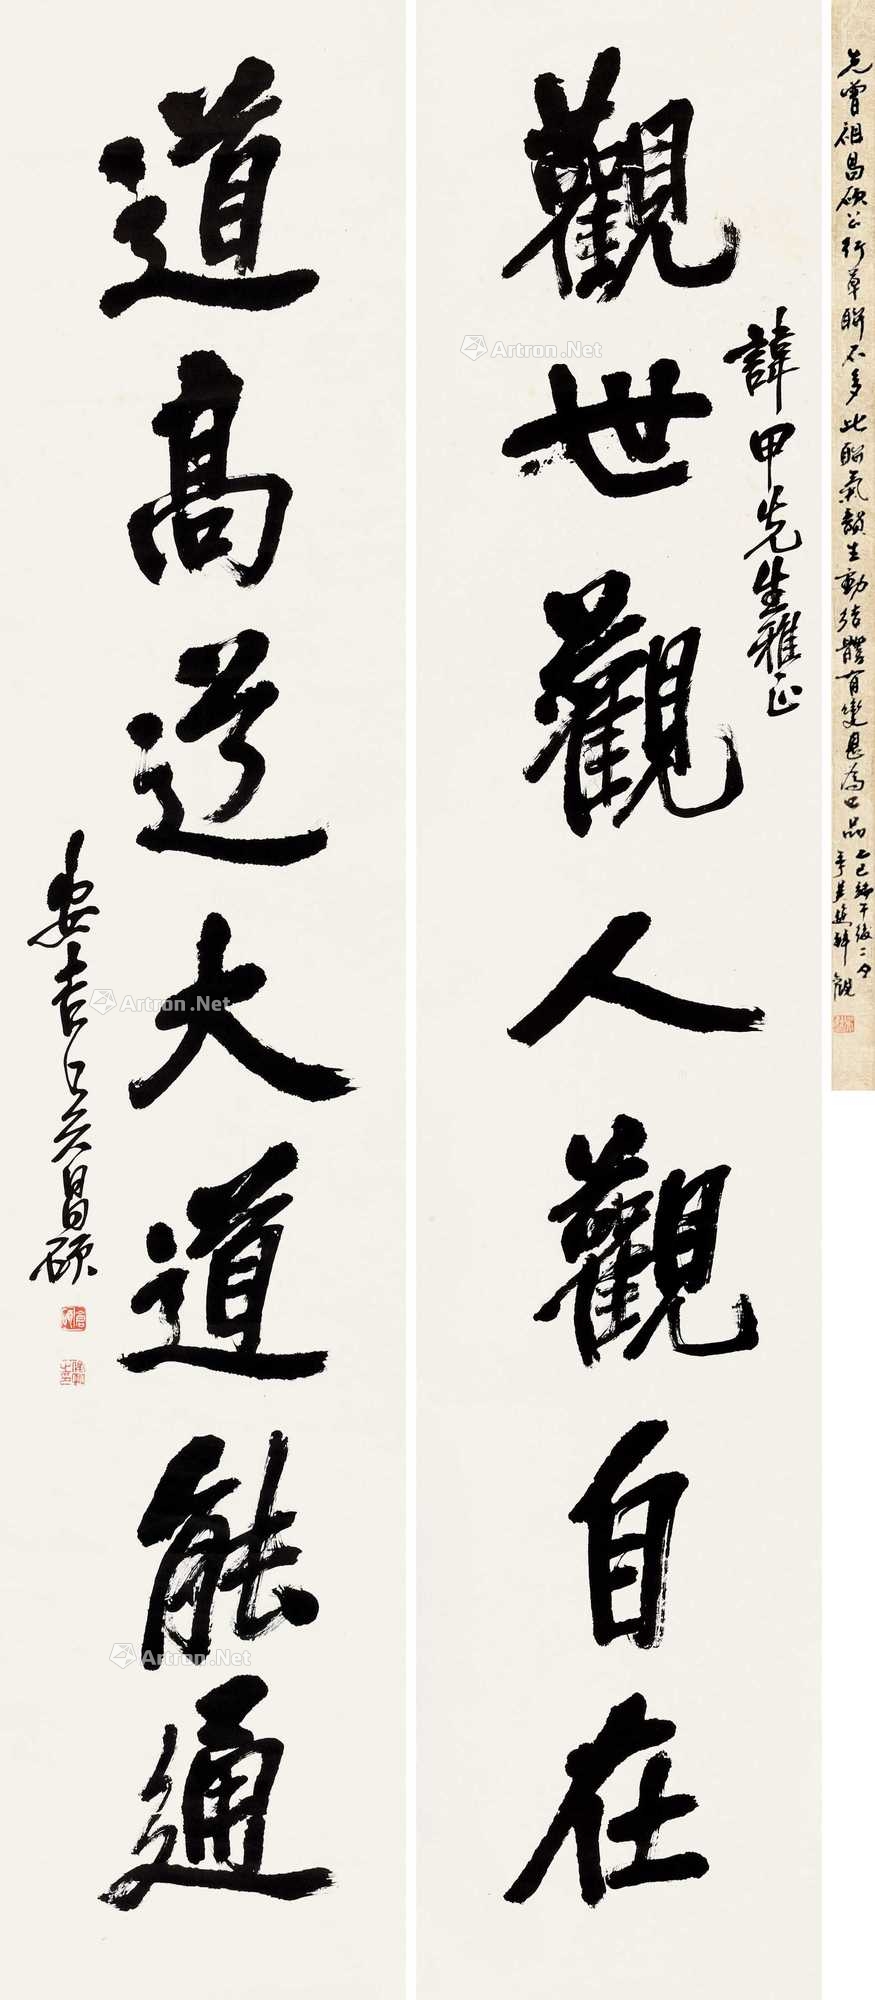 先曾祖昌硕公行草联不多此联氣韻生動結體有變是為上品
乙巳端午後二夕
觀
觀世觀人觀自在
諱甲先生雅正
道高道大道能通
安吉吳昌碩
Artron.Net
Artron.Net
Artron.Net